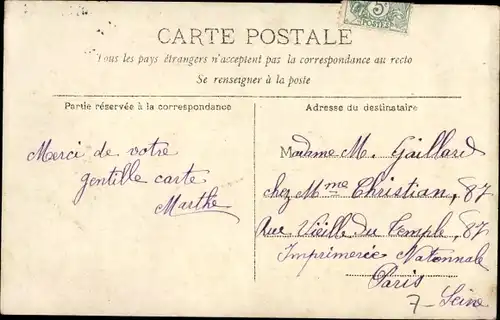 5c
POSTES
CARTE POSTALE
Tous les pays étrangers n'acceptent pas la correspondance au recto
Se renseigner à la poste
Partie réservée à la correspondance
Merci de votre
gentille carte
Marthe
Adresse du destinataire
Madame M. Gaillard
chez Mme Christian, 87
Rue Vieille du Temple, 87
Imprimerie Nationnale
Paris
7 - Seine